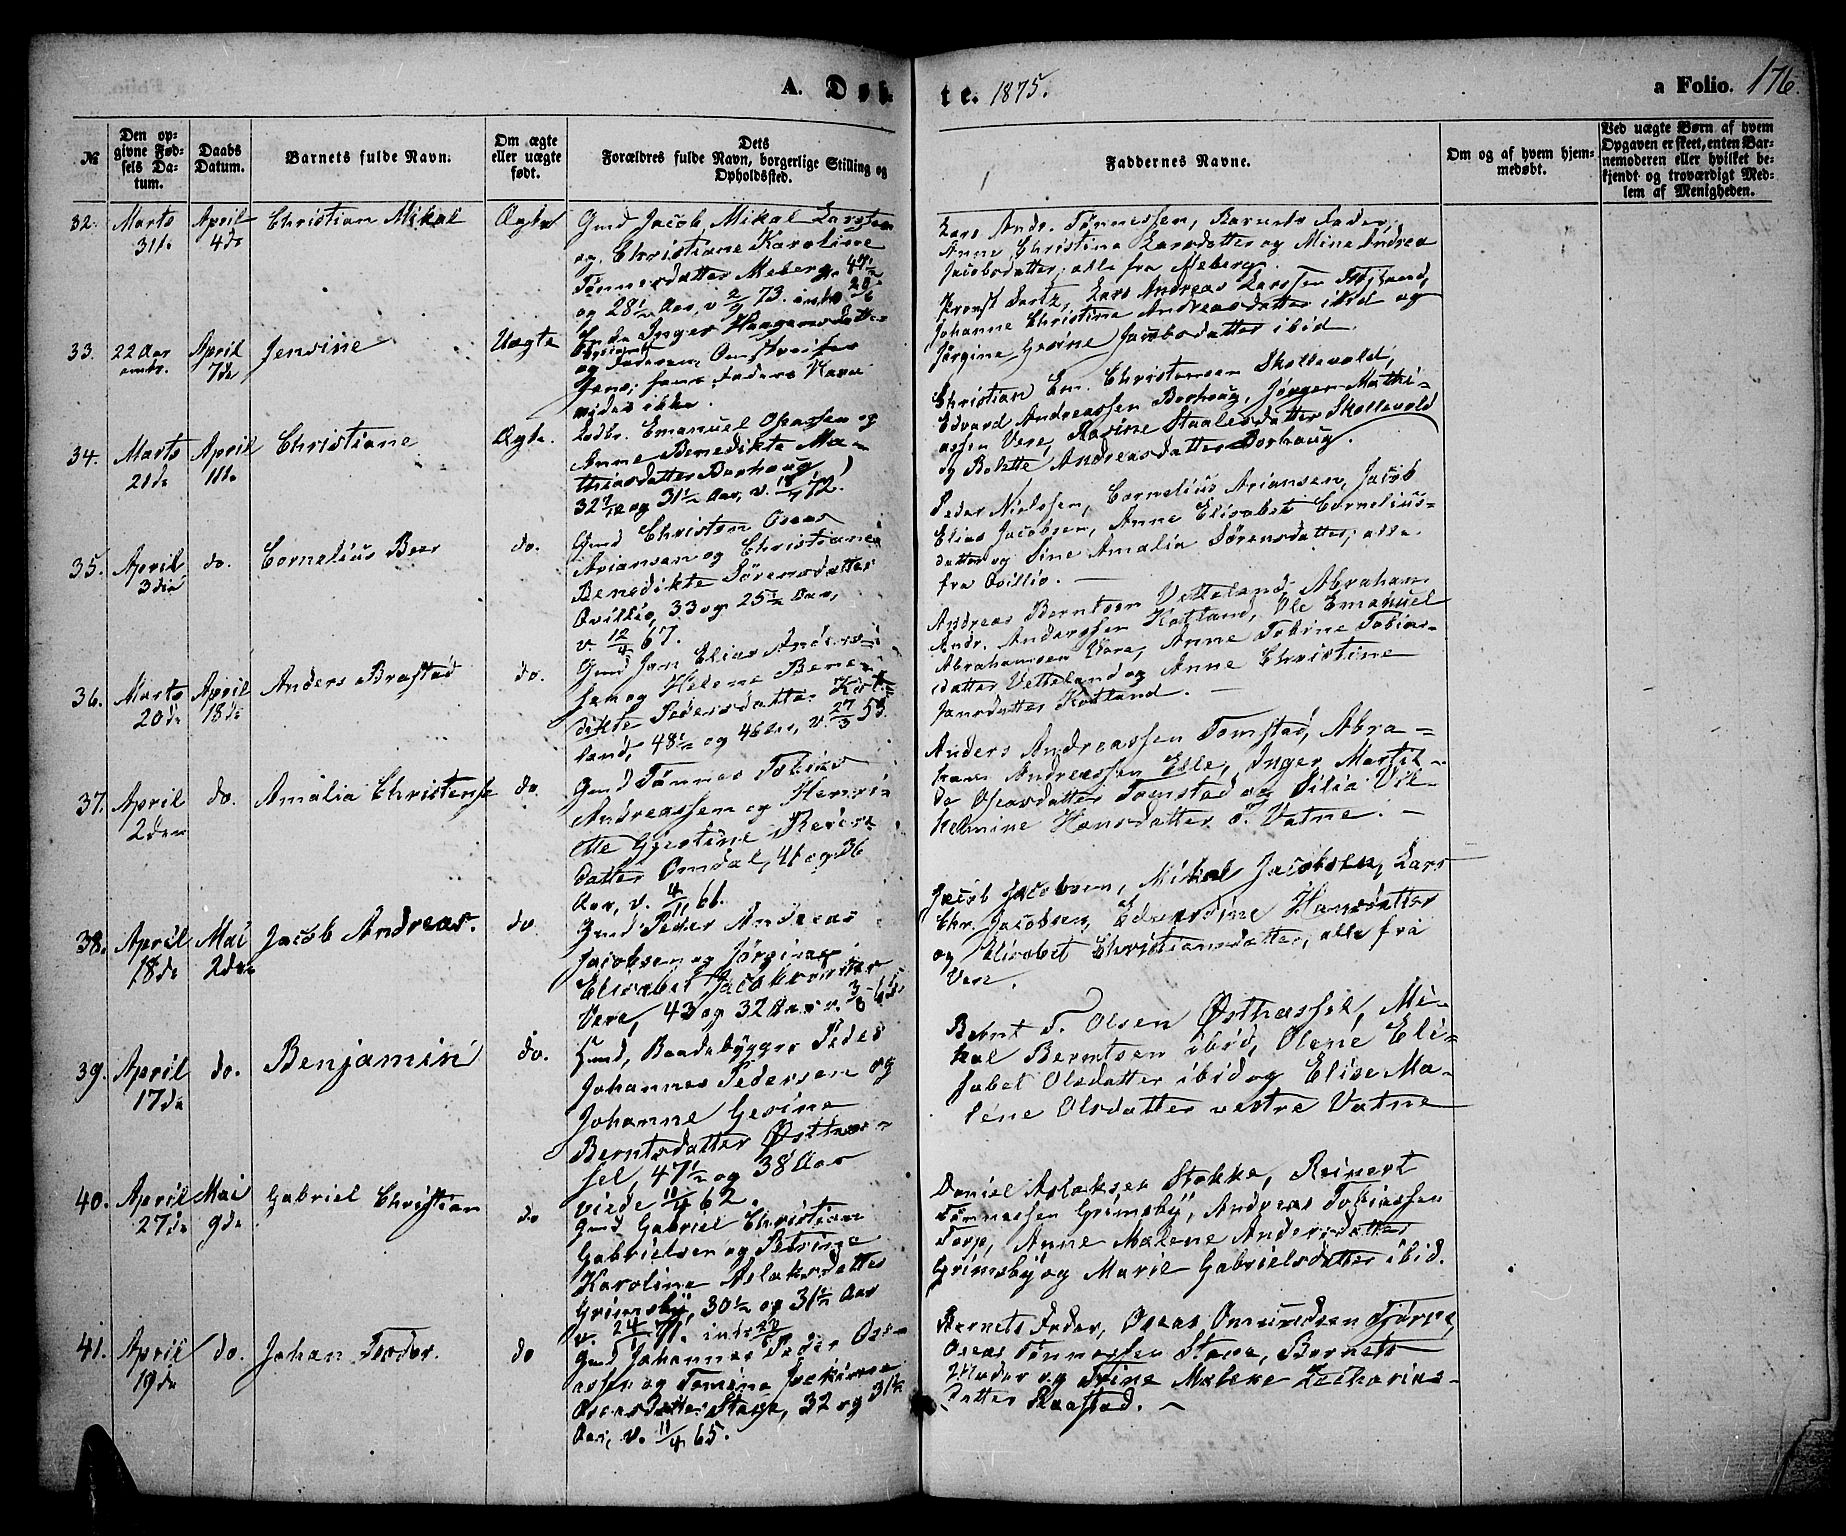 A. Døb-
te. 1875.
a Folio. 176.
№
Den op-
givne Fød-
sels Da-
tum.
Daabs
Datum.
Barnets fulde Navn.
Om ægte
eller uægte
født.
Dets
Forældres fulde Navn, borgerlige Stilling og
Opholdssted.
Faddernes Navne.
Om og af hvem hjem-
medøbt.
Ved uægte Børn af hvem
Opgaven er skeet, enten Bar-
nemoderen eller hvilket be-
kjendt og troværdigt Med-
lem af Menigheden.
32.
Marts
31te
April
4de
Christian Mikal
Ægte
Gmd Jacob Mikal Larssen
og Christiane Karoline
Tønnesdatter Meberg, 47½
og 28½ Aar, v 2/9 73.
Lars Andr. Tønnessen, Barnets Fader,
Anne Christine Larsdatter og Mine Andrea
Jacobsdatter, alle fra Meberg.
33.
22 Aar
April
7de
Jensine
Uægte
Inger Haagensdatter
og Faderen Omstreifer
Jens, hans Faders Navn
vides ikke.
Provst Lars Andreas Larssen
Johanne Christine Andreasdatter ibid og
Jørgine Gesine Jacobsdatter ibid.
34.
Marts
21de
April
11te
Christiane
Ægte.
Emanuel Oseassen og
Anne Benedikte Ma-
thiasdatter Borhaug
32 og 31½ Aar, v. 72.
Christian Em. Christensen Skollevold,
Edvard Andreassen Borhaug, Jørgen Mathi-
assen Vere, Rasine Staalesdatter Skollevold
og Bolette Andreasdatter Borhaug.
35.
April
3die
do.
Cornelius Beer
do.
Gmd Christen Oseas
Ariansen og Christiane
Benedikte Sørensdatter
33 og 25½ Aar,
v 12/4 67.
Peder Nielssen, Cornelius Ariansen, Jacob
Elias Jacobsen, Anne Elisabet Cornelius-
datter og Sine Amalia Sørensdatter, alle
fra
36.
Marts
20de
April
18de
Anders Brastad
do.
Gmd Jan Elias Anders-
sen og Helene Bene-
dikte Pedersdatter Kat-
land, 48½ og 46 Aar, v. 27/3 53.
Andreas Berntsen Vetteland, Abraham
Andr. Anderssen Katland, Ole Emanuel
Abrahamsen Vere, Anne Tobine Tobias-
datter Vetteland og Anne Christine
Jansdatter Katland.
37.
April
2den
do.
Amalia Christense
do.
Gmd Tønnes Tobias
Andreassen og Henri-
ette Gjestine Reiers-
datter Omdal, 41 og 36
Aar, v. 4/11 66.
Anders Andreassen Tomstad, Abra-
ham Andreassen Elle, Inger Martil-
de Oseasdatter Tomstad og Silia Vil-
helmine Hansdatter ø. Vatne.
38.
April
18de
Mai
2den
Jacob Andreas.
do
Gmd Peder Andreas
Jacobsen og Jørgine
Elisabet Jacobsdatter
Vere, 43 og 32 Aar v.
Jacob Jacobsen, Mikal Jacobsen, Lars
Chr. Jacobsen, Edvardine Hansdatter
og Elisabet Christiansdatter, alle fra
Vere.
39.
April
17de
do.
Benjamin
do.
Gmd, Baadebygger Peder
Johannes Pedersen og
Johanne Gesine
Berntsdatter Østhas-
sel, 47½ og 38 Aar
viede 11/4 62.
Bernt T. Olsen Østhassel, Mi-
kal Berntsen ibid, Olene Eli-
sabet Olsdatter ibid og Elise Ma-
lene Olsdatter vestre Vatne
40.
April
27de
Mai
9de
Gabriel Christian
do
Gmd Gabriel Christian
Gabrielsen og Petrine
Karoline Aslaksdatter
Grimsby, 30½ og 31½ Aar
v. 24/ 71.
Daniel Aslaksen Stokke, Reinert
Tønnessen Grimsby, Andreas Tobiassen
Torp, Anne Malene Andersdatter
Grimsby og Marie Gabrielsdatter ibid.
41.
April
19de
do.
Johan Teodor.
do
Gmd Johannes Peder Ose-
assen og Tomine Jockime
Oseasdatter Stave, 32 og 31½
Aar, v. 11/4 65.
Barnets Fader, Oseas Omundsen
Oseas Tønnessen Stave, Barnets
Moder og Trine Malene Zacharias-
datter